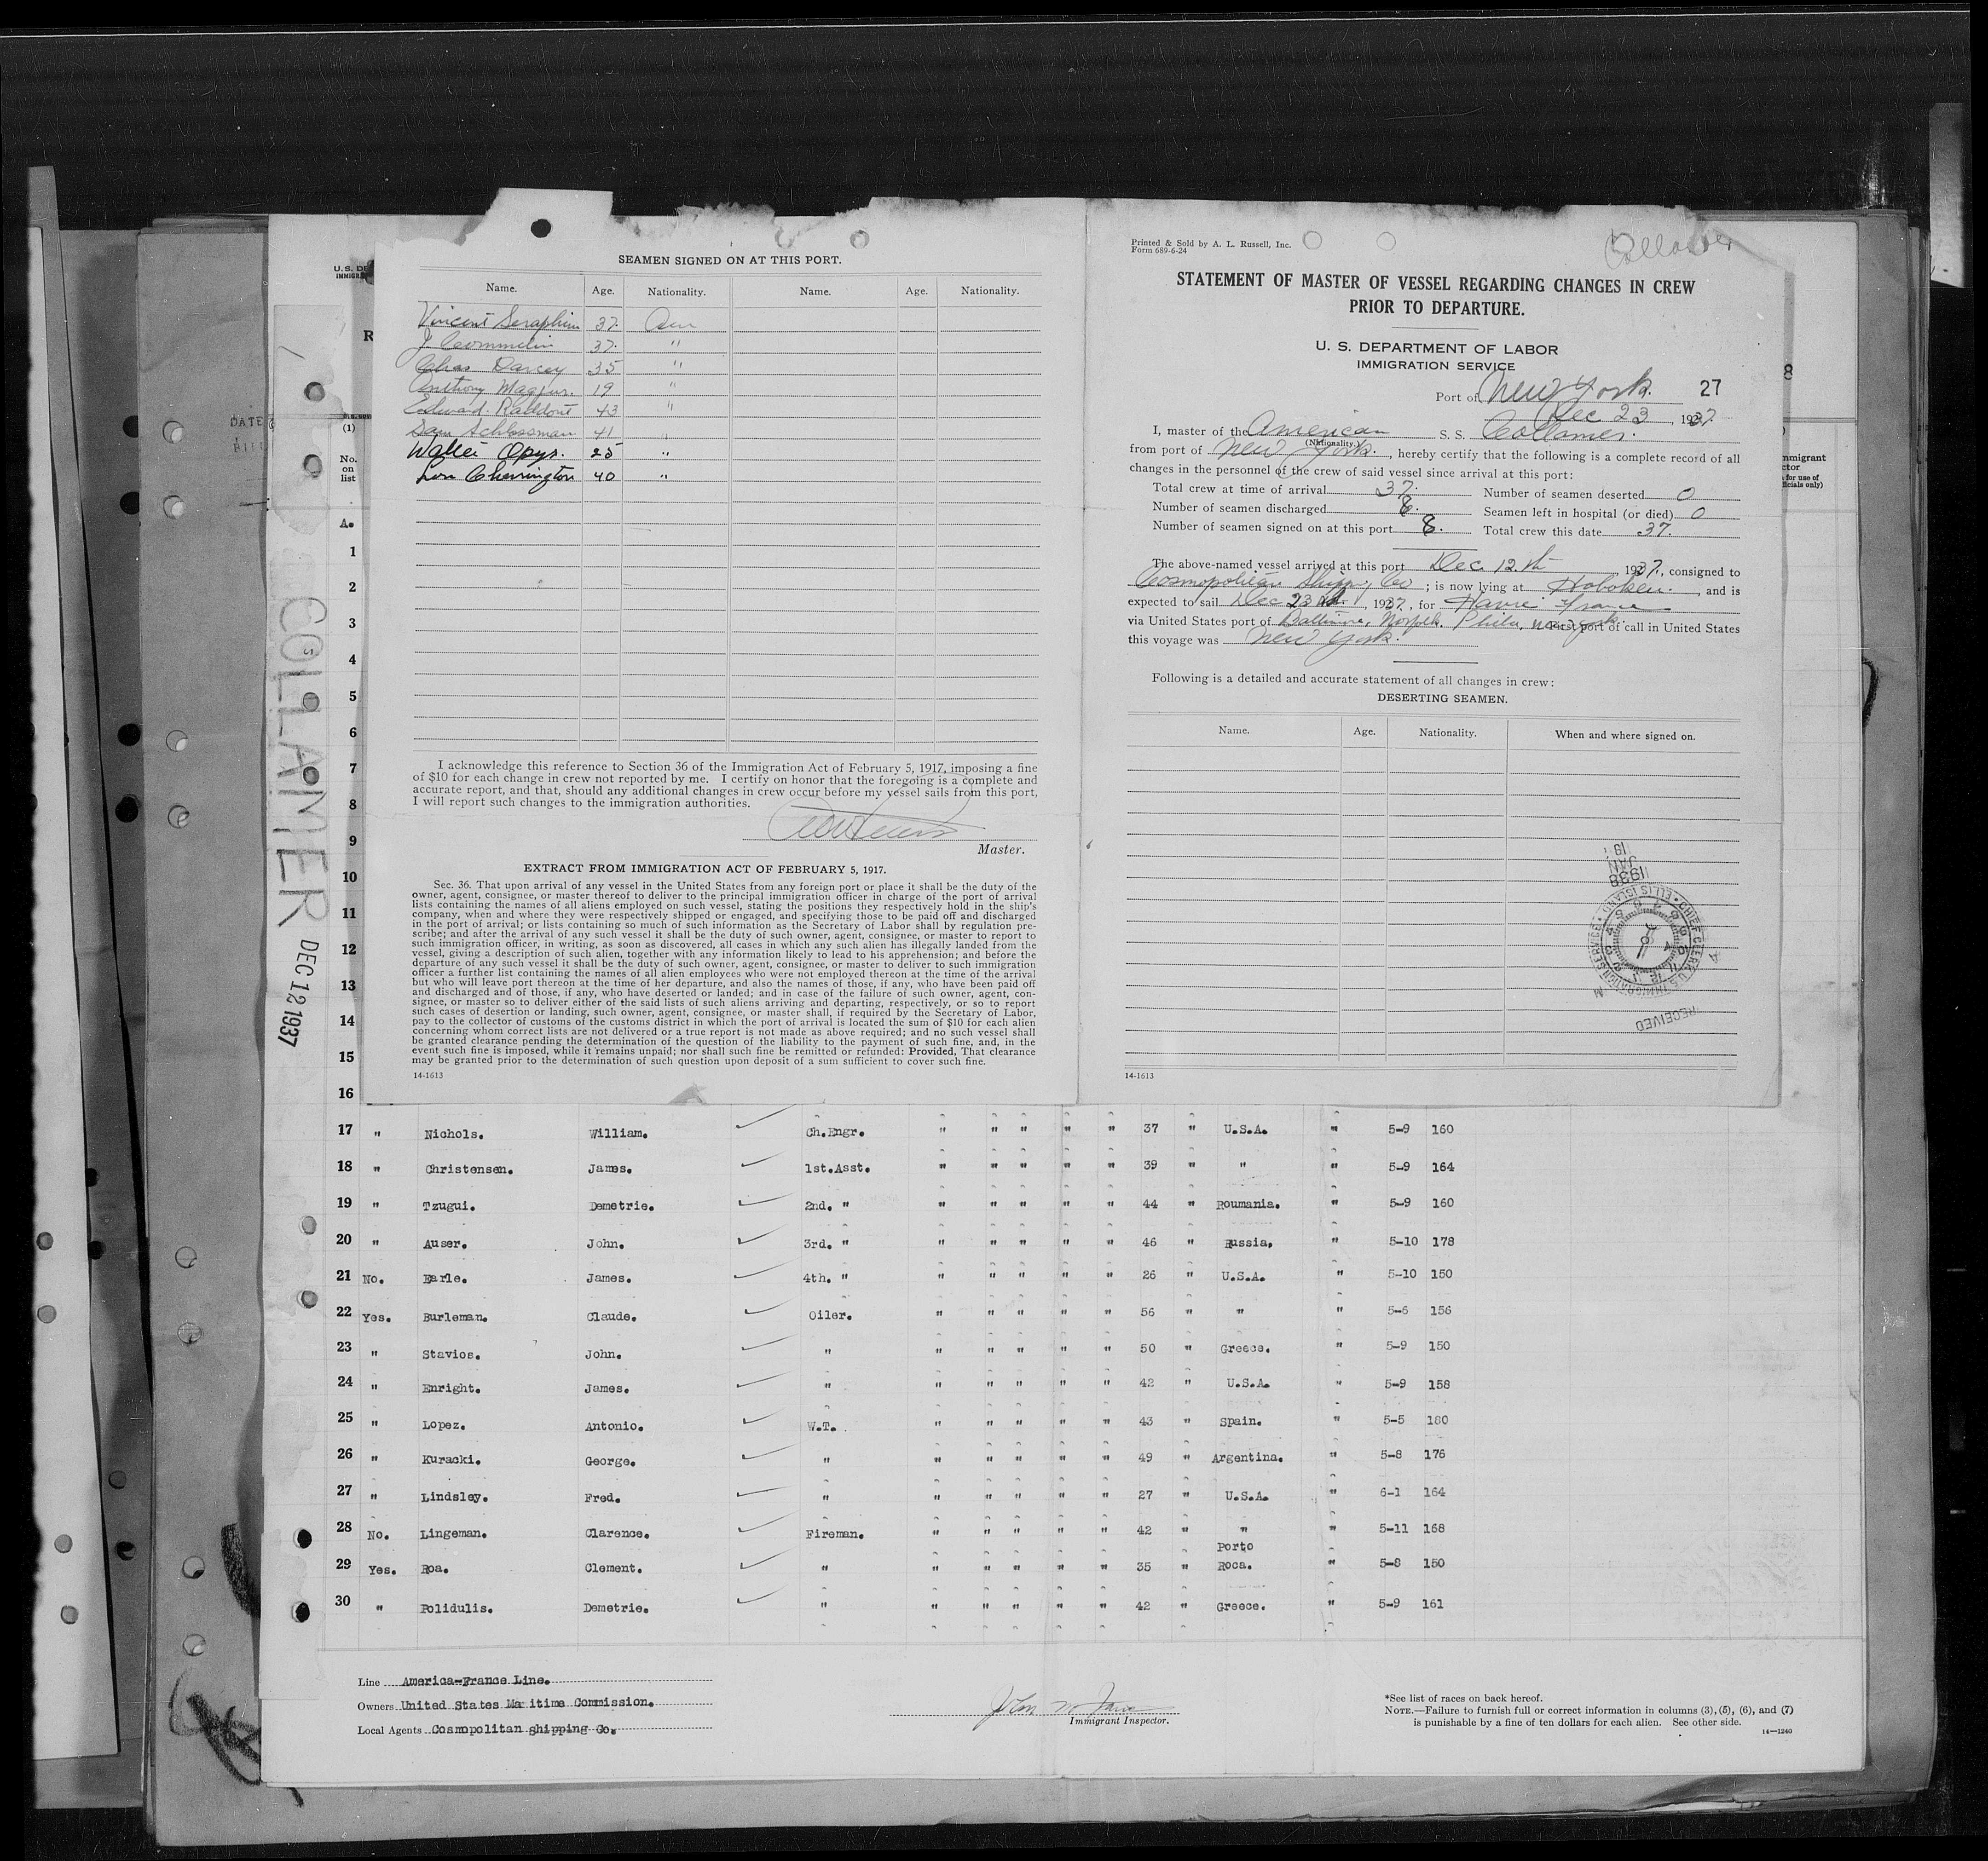 SEAMEN SIGNED ON AT THIS PORT.
Name. Age. Nationality. Name. Age. Nationality.
Vincent Seraphim 37 Am
J. Commelin 37 "
Chas Darcey 35 "
Anthony 19 "
Edward 43 "
Sam Schlossman 41 "
Walter Opys. 25 "
Lon Cherrington 40 "
I acknowledge this reference to Section 36 of the Immigration Act of February 5, 1917, imposing a fine
of $10 for each change in crew not reported by me. I certify on honor that the foregoing is a complete and
accurate report, and that, should any additional changes in crew occur before my vessel sails from this port,
I will report such changes to the immigration authorities.
Master.
EXTRACT FROM IMMIGRATION ACT OF FEBRUARY 5, 1917.
Sec. 36. That upon arrival of any vessel in the United States from any foreign port or place it shall be the duty of the
owner, agent, consignee, or master thereof to deliver to the principal immigration officer in charge of the port of arrival
lists containing the names of all aliens employed on such vessel, stating the positions they respectively hold in the ship's
company, when and where they were respectively shipped or engaged, and specifying those to be paid off and discharged
in the port of arrival; or lists containing so much of such information as the Secretary of Labor shall by regulation pre-
scribe; and after the arrival of any such vessel it shall be the duty of such owner, agent, consignee, or master to report to
such immigration officer, in writing, as soon as discovered, all cases in which any such alien has illegally landed from the
vessel, giving a description of such alien, together with any information likely to lead to his apprehension; and before the
departure of any such vessel it shall be the duty of such owner, agent, consignee, or master to deliver to such immigration
officer a further list containing the names of all alien employees who were not employed thereon at the time of the arrival
but who will leave port thereon at the time of her departure, and also the names of those, if any, who have been paid off
and discharged and of those, if any, who have deserted or landed; and in case of the failure of such owner, agent, con-
signee, or master so to deliver either of the said lists of such aliens arriving and departing, respectively, or so to report
such cases of desertion or landing, such owner, agent, consignee, or master shall, if required by the Secretary of Labor,
pay to the collector of customs of the customs district in which the port of arrival is located the sum of $10 for each alien
concerning whom correct lists are not delivered or a true report is not made as above required; and no such vessel shall
be granted clearance pending the determination of the question of the liability to the payment of such fine, and, in the
event such fine is imposed, while it remains unpaid; nor shall such fine be remitted or refunded: Provided, That clearance
may be granted prior to the determination of such question upon deposit of a sum sufficient to cover such fine.
14-1613
Printed & Sold by A. L. Russell, Inc.
Form 689-6-24
Collamer
STATEMENT OF MASTER OF VESSEL REGARDING CHANGES IN CREW
PRIOR TO DEPARTURE.
U. S. DEPARTMENT OF LABOR
IMMIGRATION SERVICE
Port of New York. 27
Dec 23, 1937
I, master of the American S. S. Collamer.
(Nationality.)
from port of New York., hereby certify that the following is a complete record of all
changes in the personnel of the crew of said vessel since arrival at this port:
Total crew at time of arrival 37. Number of seamen deserted 0
Number of seamen discharged 8. Seamen left in hospital (or died) 0
Number of seamen signed on at this port 8. Total crew this date 37.
The above-named vessel arrived at this port Dec. 12.th, 1937, consigned to
Cosmopolitan Shipp. Co; is now lying at Hoboken., and is
expected to sail Dec 23, 1937, for Havre France
via United States port of Baltimore, Norfolk, Phila, New York. First port of call in United States
this voyage was New York.
Following is a detailed and accurate statement of all changes in crew:
DESERTING SEAMEN.
Name. Age. Nationality. When and where signed on.
RECEIVED
CHIEF CLERK U.S. IMMIGRATION SERVICE ELLIS ISLAND
1938 JAN 19
14-1613
COLLAMER DEC 12 1937
(1)
No.
on
list
A.
1
2
3
4
5
6
7
8
9
10
11
12
13
14
15
16
17 " Nichols. William. Ch.Engr. " " " " " 37 " U.S.A. " 5-9 160
18 " Christensen. James. 1st.Asst. " " " " " 39 " " " 5-9 164
19 " Tzugui. Demetrie. 2nd. " " " " " " 44 " Roumania. " 5-9 160
20 " Auser. John. 3rd. " " " " " " 46 " Russia. " 5-10 178
21 No. Earle. James. 4th. " " " " " " 26 " U.S.A. " 5-10 150
22 Yes. Burleman. Claude. Oiler. " " " " " 56 " " " 5-6 156
23 " Stavios. John. " " " " " " 50 " Greece. " 5-9 150
24 " Enright. James. " " " " " " 42 " U.S.A. " 5-9 158
25 " Lopez. Antonio. W.T. " " " " " 43 " Spain. " 5-5 180
26 " Kuracki. George. " " " " " " 49 " Argentina. " 5-8 176
27 " Lindsley. Fred. " " " " " " 27 " U.S.A. " 6-1 164
28 No. Lingeman. Clarence. Fireman. " " " " " 42 " " " 5-11 168
29 Yes. Roa. Clement. " " " " " " 35 " Porto Roca. " 5-8 150
30 " Polidulis. Demetrie. " " " " " " 42 " Greece. " 5-9 161
Line America-France Line.
Owners United States Maritime Commission.
Local Agents Cosmopolitan Shipping Co.
Immigrant Inspector.
*See list of races on back hereof.
NOTE.—Failure to furnish full or correct information in columns (3), (5), (6), and (7)
is punishable by a fine of ten dollars for each alien. See other side.
14—1240